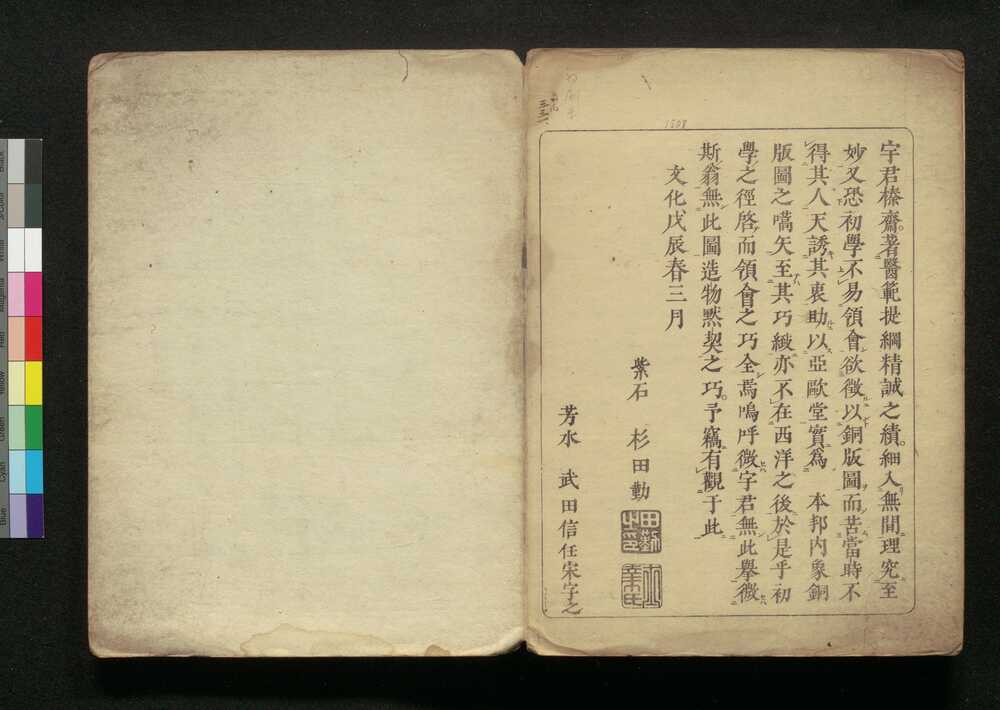 宇君榛齋著醫範提綱精誠之績細入無間理究至
妙又恐初學不易領會欲徵以銅版圖而苦當時不
得其人天誘其衷助以亞歐堂實爲　本邦內象銅
版圖之嚆矢至其巧緻亦不在西洋之後於是乎初
學之徑啓而領會之巧全焉嗚呼微宇君無此擧微
斯翁無此圖造物默契之巧予竊有觀于此
文化戊辰春三月
紫石　杉田勤
芳水　武田信任宋字之
1808